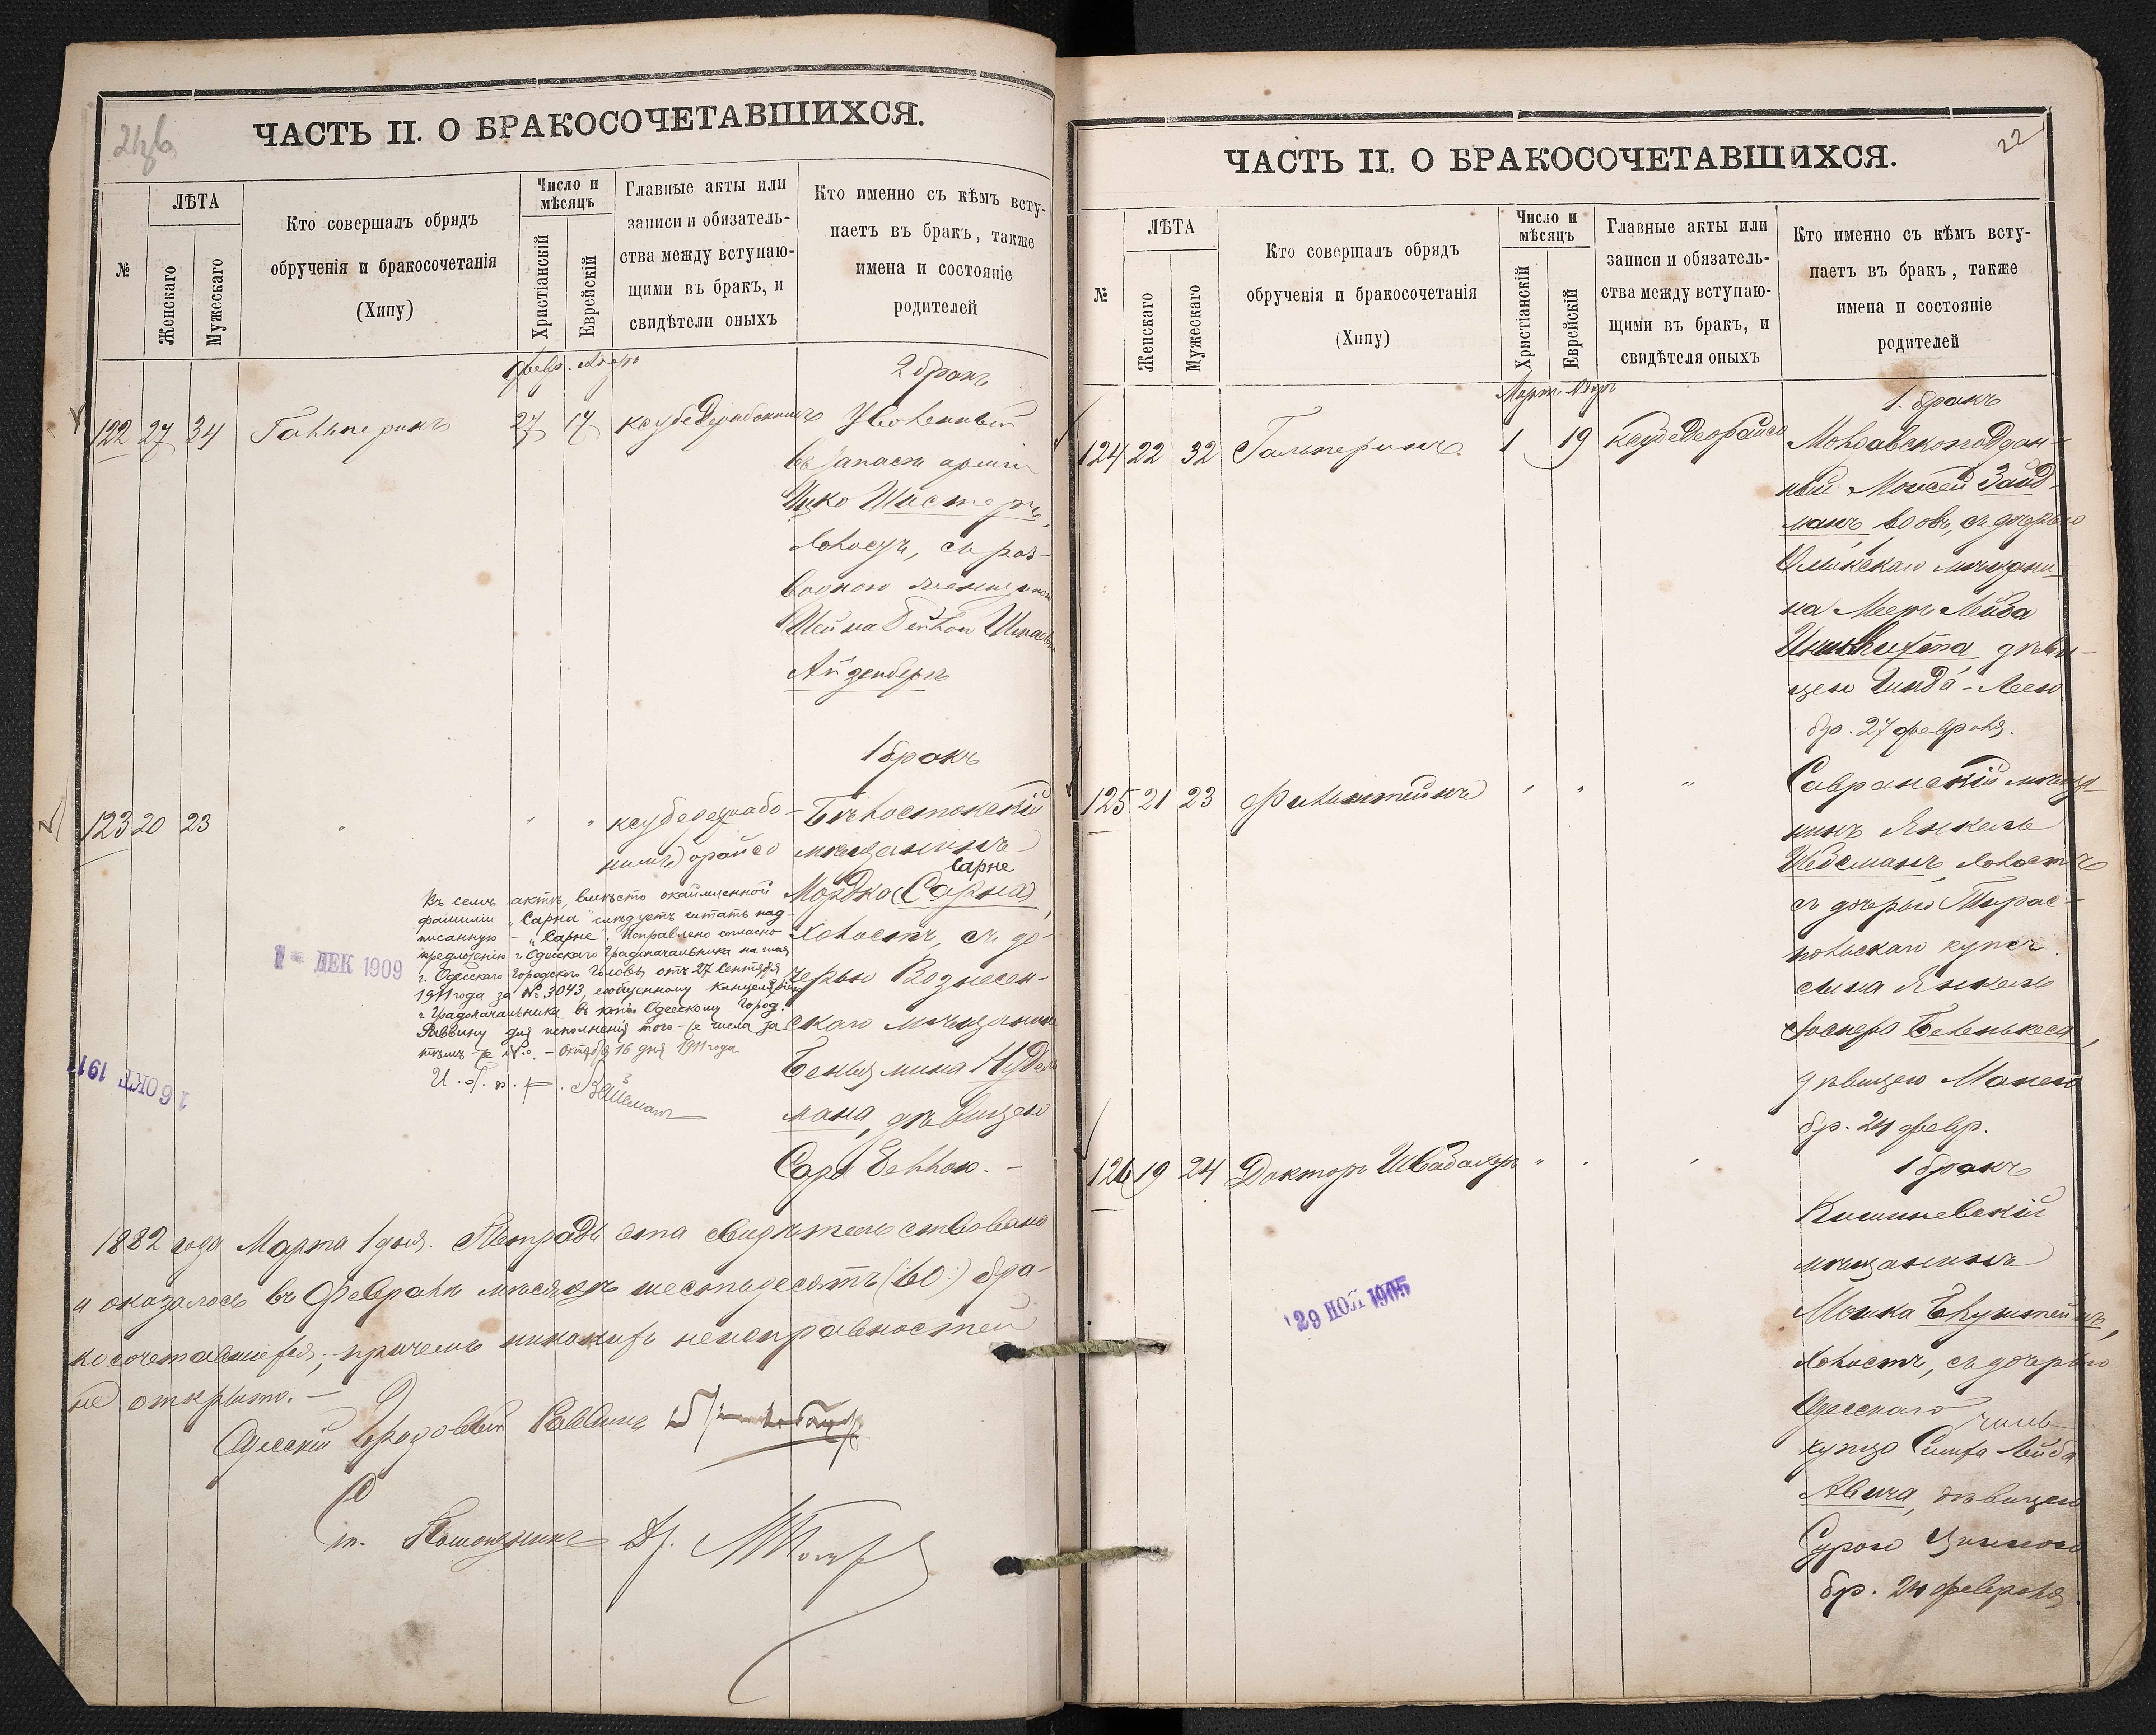 ЧАСТЬ II. О БРАКОСОЧЕТАВШИХСЯ.
№
ЛѢТА
Женскаго
Мужескаго
Кто совершалъ обрядъ
обрученія и бракосочетанія
(Хипу)
Число и
мѣсяцъ
Христіанскій
Еврейскій
Главные акты или
записи и обязатель-
ства между вступаю-
щими въ бракъ, и
свидѣтели оныхъ
Кто именно съ кѣмъ всту-
паетъ въ бракъ, также
имена и состояніе
родителей
Февр. Адоръ
2 бракъ
122 27 34 Гальперинъ 27 17
Уволенный
въ запасъ арміи
Ицко Шистеръ,
холостъ, съ раз-
водною женщиною
Шейна Бейлой
Айзенбергъ
1 бракъ
123 20 23 " " "
Бѣлостокскій
мѣщанинъ
Сарне
Мордко (Сарна),
Холостъ, съ до-
черью Вознесен-
скаго мѣщанина
Беньямина Нудель
мана, дѣвицею
Сарa Бейлою. -
Въ семъ актѣ, вмѣсто окаймленной
фамиліи „Сарна" слѣдуетъ читать над-
писанную - „Сарне". Исправлено согласно
предложенію г. Одесскаго Градоначальника на имя
г. Одесскаго Городского Головы отъ 27 Сентября
1911 года за № 3043, сообщенному Канцеляріею
г. Градоначальника въ копіи Одесскому Город.
Раввину для исполненія того-же числа за
тѣмъ-же №. - Октября 16 дня 1911 года.
1 - ДЕК 1909
16 ОКТ 1911
1882 года Марта 1 дня. Тетрадь эта свидѣтельствована
и оказалось въ Февралѣ мѣсяцѣ шестьдесятъ (:60:) бра-
косочетавшихся, причемъ никакихъ неисправностей
не открыто. -
Одесскій Городовый Раввинъ
Ст. Помощникъ Др.
ЧАСТЬ II. О БРАКОСОЧЕТАВШИХСЯ.
22
№
ЛѢТА
Женскаго
Мужескаго
Кто совершалъ обрядъ
обрученія и бракосочетанія
(Хипу)
Число и
мѣсяцъ
Христіанскій
Еврейскій
Главные акты или
записи и обязатель-
ства между вступаю-
щими въ бракъ, и
свидѣтеля оныхъ
Кто именно съ кѣмъ всту-
паетъ въ бракъ, также
имена и состояніе
родителей
Мартъ Адоръ
1. бракъ
124 22 32 Гальперинъ 1 19 Ксубе Деорайсо
Молдавскоподдан-
ный Моисей Зайд-
манъ вдовъ, съ дочерью
мѣщани-
на Мееръ Лейба
дѣви-
цею Гинда-Леею
бр. 27 февраля.
125 21 23 Фикельштейнъ " " "
Савранскій мѣща-
нинъ Янкель
холостъ
съ дочерью Тирас-
польскаго купеч.
сына Янкеля
дѣвицею Манею
бр. 24 февр.
126 19 24 Докторъ Швабахеръ " " "
1 бракъ
Кишиневскій
мѣщанинъ
Мошка Блуштейнъ,
холостъ, съ дочерью
Одесскаго
купца Симха Лейба
Авича, дѣвицею
Сурою Ципою
бр. 24 февраля
29 НОЯ 1905